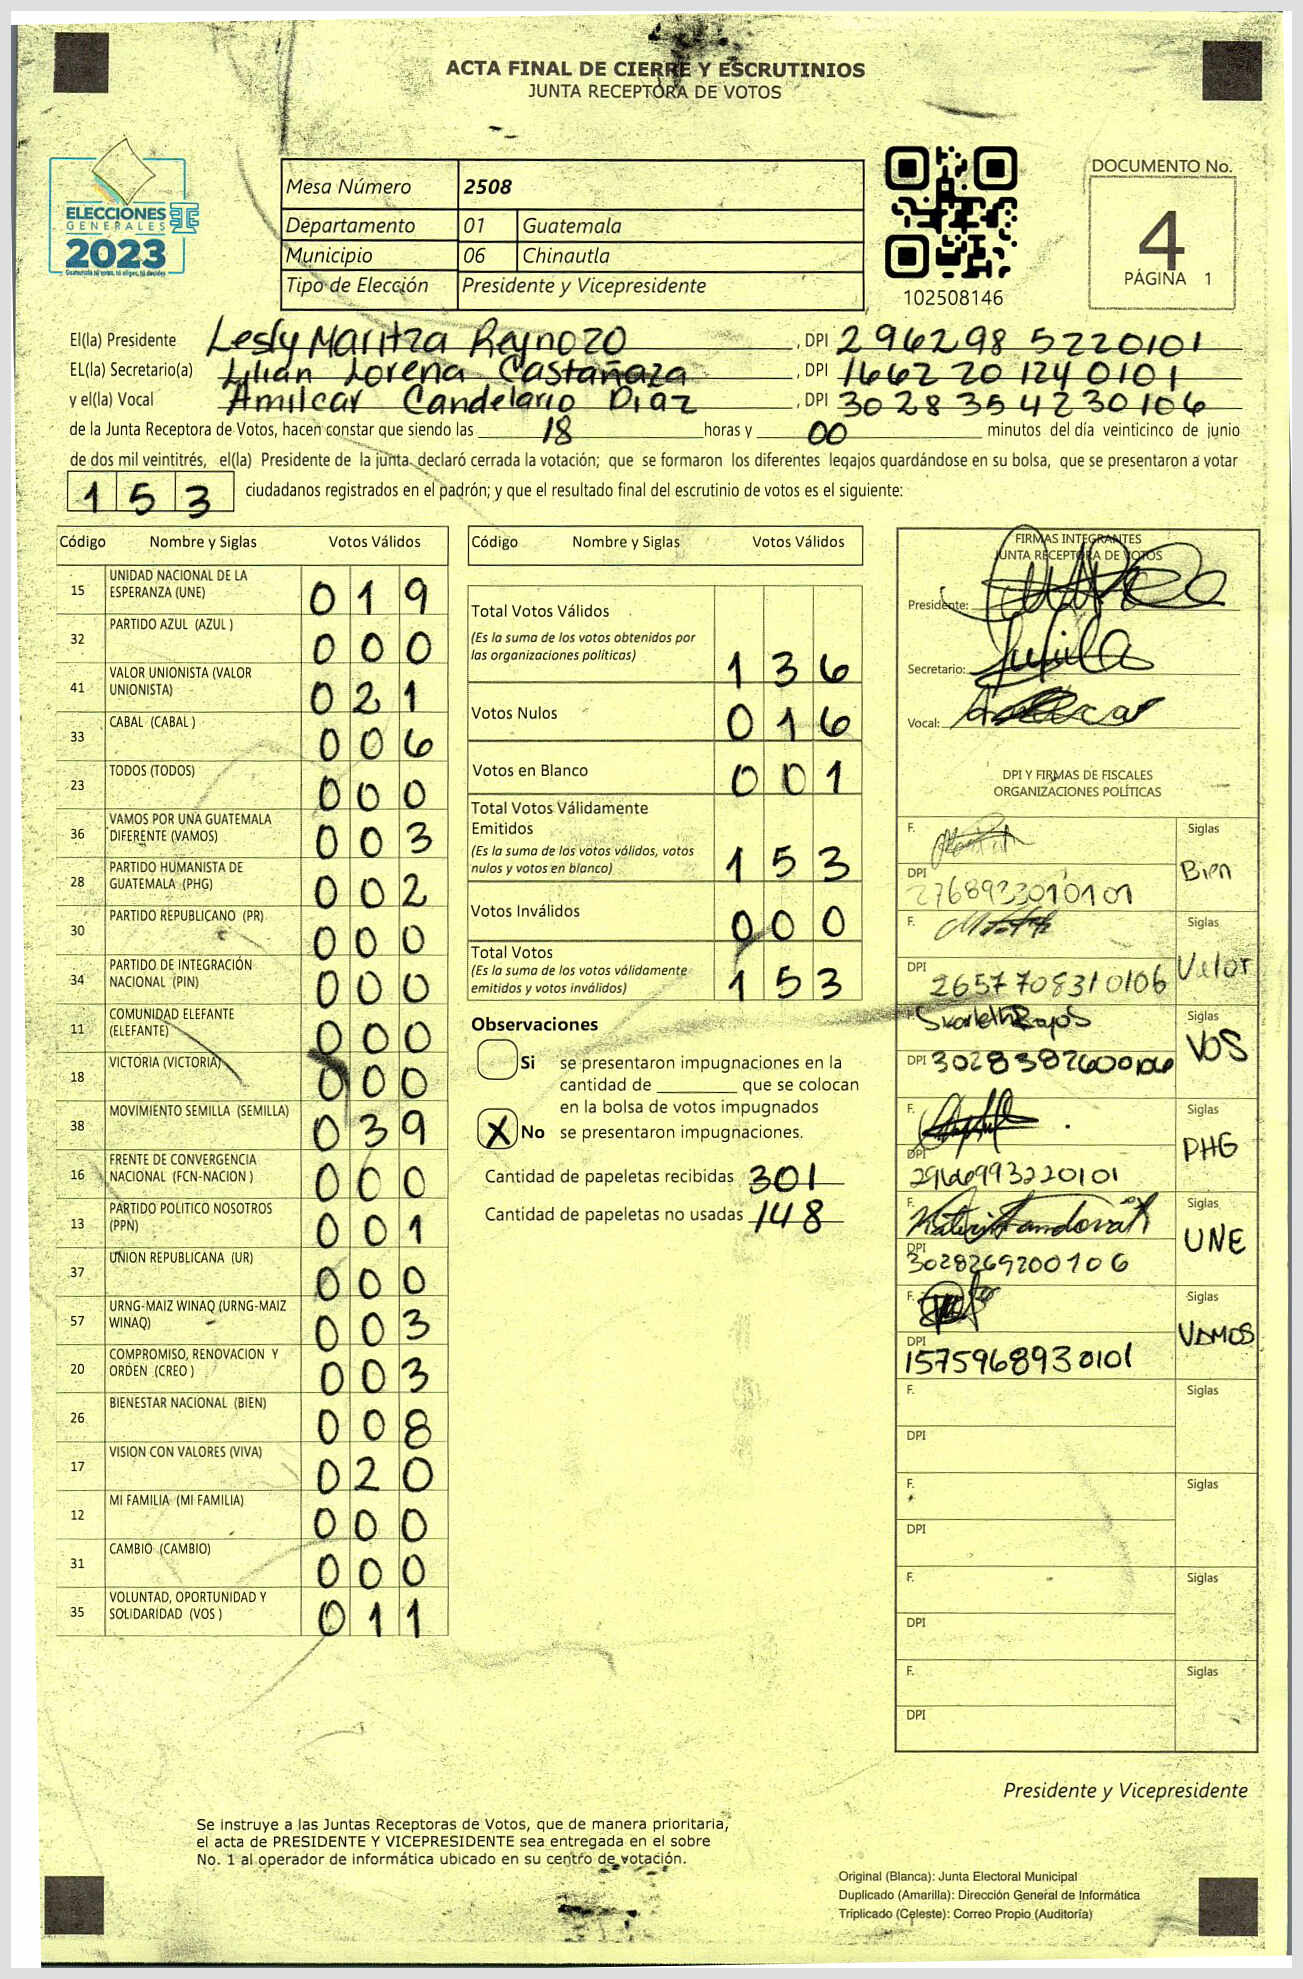 ACTA FINAL DE CIERRE Y ESCRUTINIOS
JUNTA RECEPTORA DE VOTOS
ELECCIONES
GENERALES
2023
Guatemala tú votas, tú eliges, tú decides
Mesa Número 2508
Departamento 01 Guatemala
Municipio 06 Chinautla
Tipo de Elección Presidente y Vicepresidente
102508146
DOCUMENTO No.
4
PÁGINA 1
El(la) Presidente Lesly Maritza Reynozo, DPI 296298 5220101
EL(la) Secretario(a) Lilian Lorena Castañaza, DPI 1662 20 124 0101
y el(la) Vocal Amilcar Candelario Diaz, DPI 3028 354230106
de la Junta Receptora de Votos, hacen constar que siendo las 18 horas y 00 minutos del día veinticinco de junio
de dos mil veintitrés, el(la) Presidente de la junta declaró cerrada la votación; que se formaron los diferentes legajos guardándose en su bolsa, que se presentaron a votar
153 ciudadanos registrados en el padrón; y que el resultado final del escrutinio de votos es el siguiente:
Código Nombre y Siglas Votos Válidos
15 UNIDAD NACIONAL DE LA ESPERANZA (UNE) 019
32 PARTIDO AZUL (AZUL ) 000
41 VALOR UNIONISTA (VALOR UNIONISTA) 021
33 CABAL (CABAL ) 006
23 TODOS (TODOS) 000
36 VAMOS POR UNA GUATEMALA DIFERENTE (VAMOS) 003
28 PARTIDO HUMANISTA DE GUATEMALA (PHG) 002
30 PARTIDO REPUBLICANO (PR) 000
34 PARTIDO DE INTEGRACIÓN NACIONAL (PIN) 000
11 COMUNIDAD ELEFANTE (ELEFANTE) 000
18 VICTORIA (VICTORIA) 000
38 MOVIMIENTO SEMILLA (SEMILLA) 039
16 FRENTE DE CONVERGENCIA NACIONAL (FCN-NACION ) 000
13 PARTIDO POLITICO NOSOTROS (PPN) 001
37 UNION REPUBLICANA (UR) 000
57 URNG-MAIZ WINAQ (URNG-MAIZ WINAQ) 003
20 COMPROMISO, RENOVACION Y ORDEN (CREO ) 003
26 BIENESTAR NACIONAL (BIEN) 008
17 VISION CON VALORES (VIVA) 020
12 MI FAMILIA (MI FAMILIA) 000
31 CAMBIO (CAMBIO) 000
35 VOLUNTAD, OPORTUNIDAD Y SOLIDARIDAD (VOS ) 011
Código Nombre y Siglas Votos Válidos
Total Votos Válidos
(Es la suma de los votos obtenidos por
las organizaciones políticas) 136
Votos Nulos 016
Votos en Blanco 001
Total Votos Válidamente
Emitidos
(Es la suma de los votos válidos, votos
nulos y votos en blanco) 153
Votos Inválidos 000
Total Votos
(Es la suma de los votos válidamente
emitidos y votos inválidos) 153
Observaciones
Si se presentaron impugnaciones en la
cantidad de ________ que se colocan
en la bolsa de votos impugnados
X No se presentaron impugnaciones.
Cantidad de papeletas recibidas 301
Cantidad de papeletas no usadas 148
FIRMAS INTEGRANTES
JUNTA RECEPTORA DE VOTOS
Presidente:
Secretario:
Vocal:
DPI Y FIRMAS DE FISCALES
ORGANIZACIONES POLÍTICAS
F. Siglas
Bien
DPI 2768933010101
F. Siglas
Valor
DPI 2657708310106
F. Siglas
VOS
DPI 3028382600106
F. Siglas
PHG
DPI 2966993220101
F. Siglas
UNE
DPI 3028269200106
F. Siglas
VAMOS
DPI 1575968930101
F. Siglas
DPI
F. Siglas
DPI
F. Siglas
DPI
F. Siglas
DPI
Presidente y Vicepresidente
Se instruye a las Juntas Receptoras de Votos, que de manera prioritaria,
el acta de PRESIDENTE Y VICEPRESIDENTE sea entregada en el sobre
No. 1 al operador de informática ubicado en su centro de votación.
Original (Blanca): Junta Electoral Municipal
Duplicado (Amarilla): Dirección General de Informática
Triplicado (Celeste): Correo Propio (Auditoría)